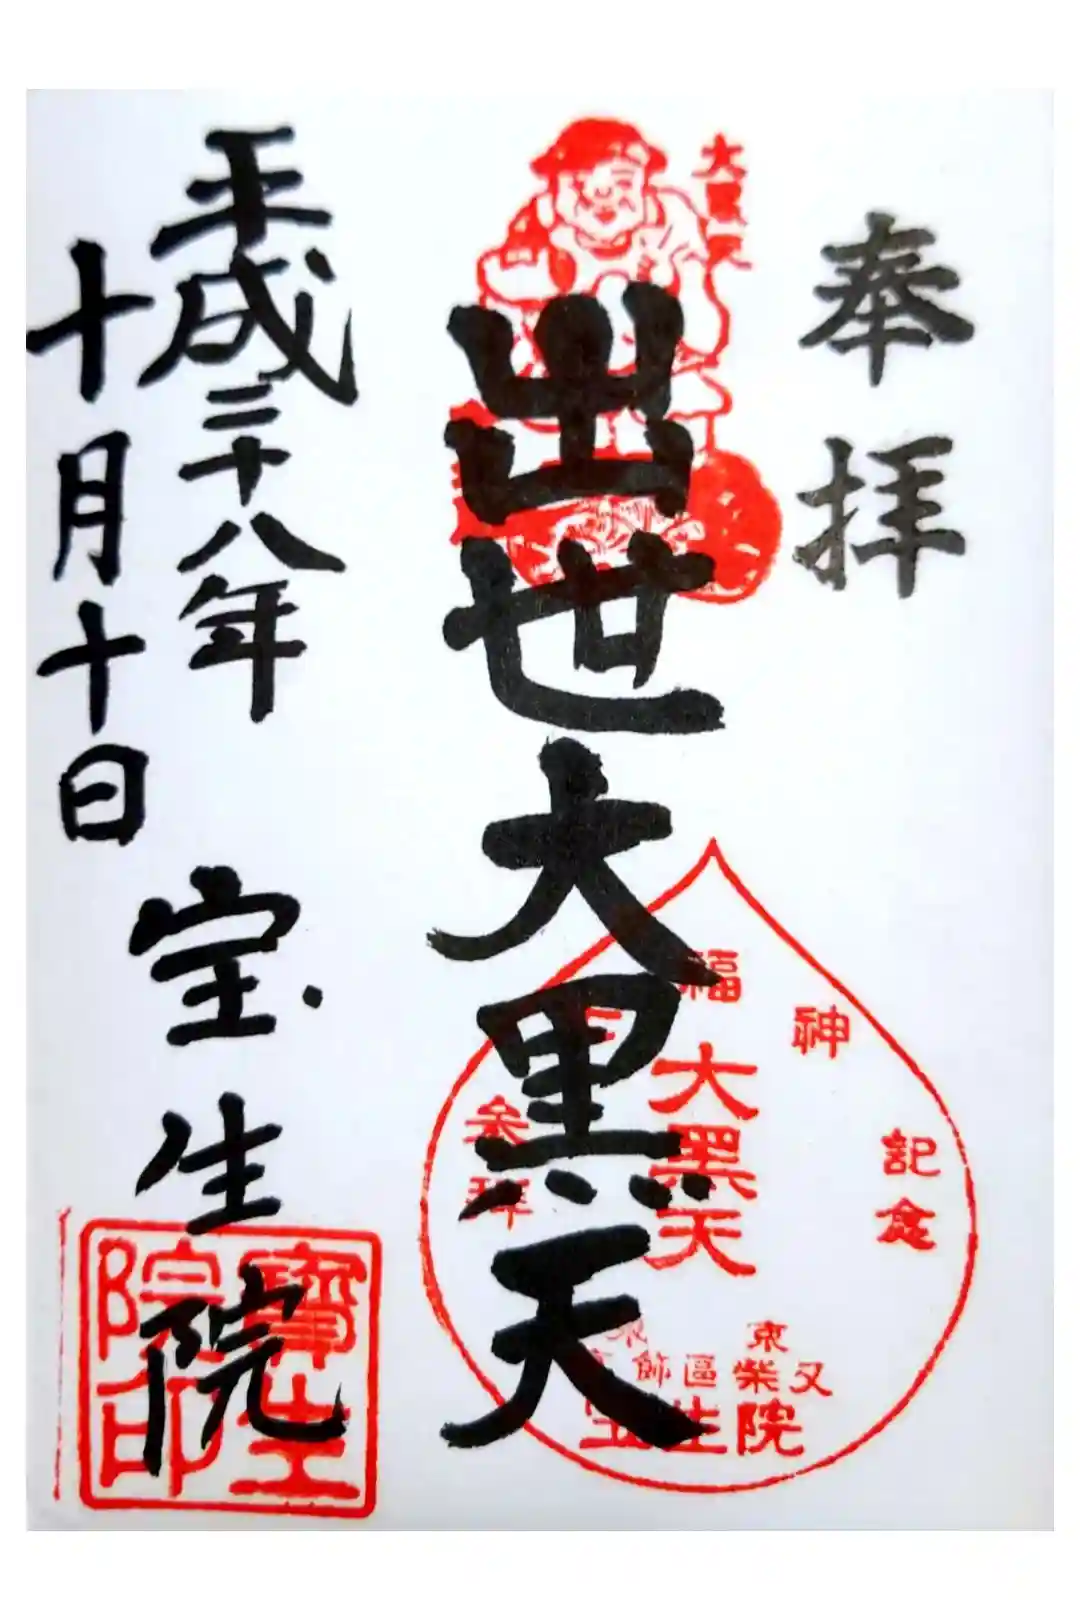 奉拝
大黒天
出世大黒天
福神記念
参拝
大黒天
東京
飾區柴又
宝生院
平成二十八年
十月十日
宝生院
寶生
院印